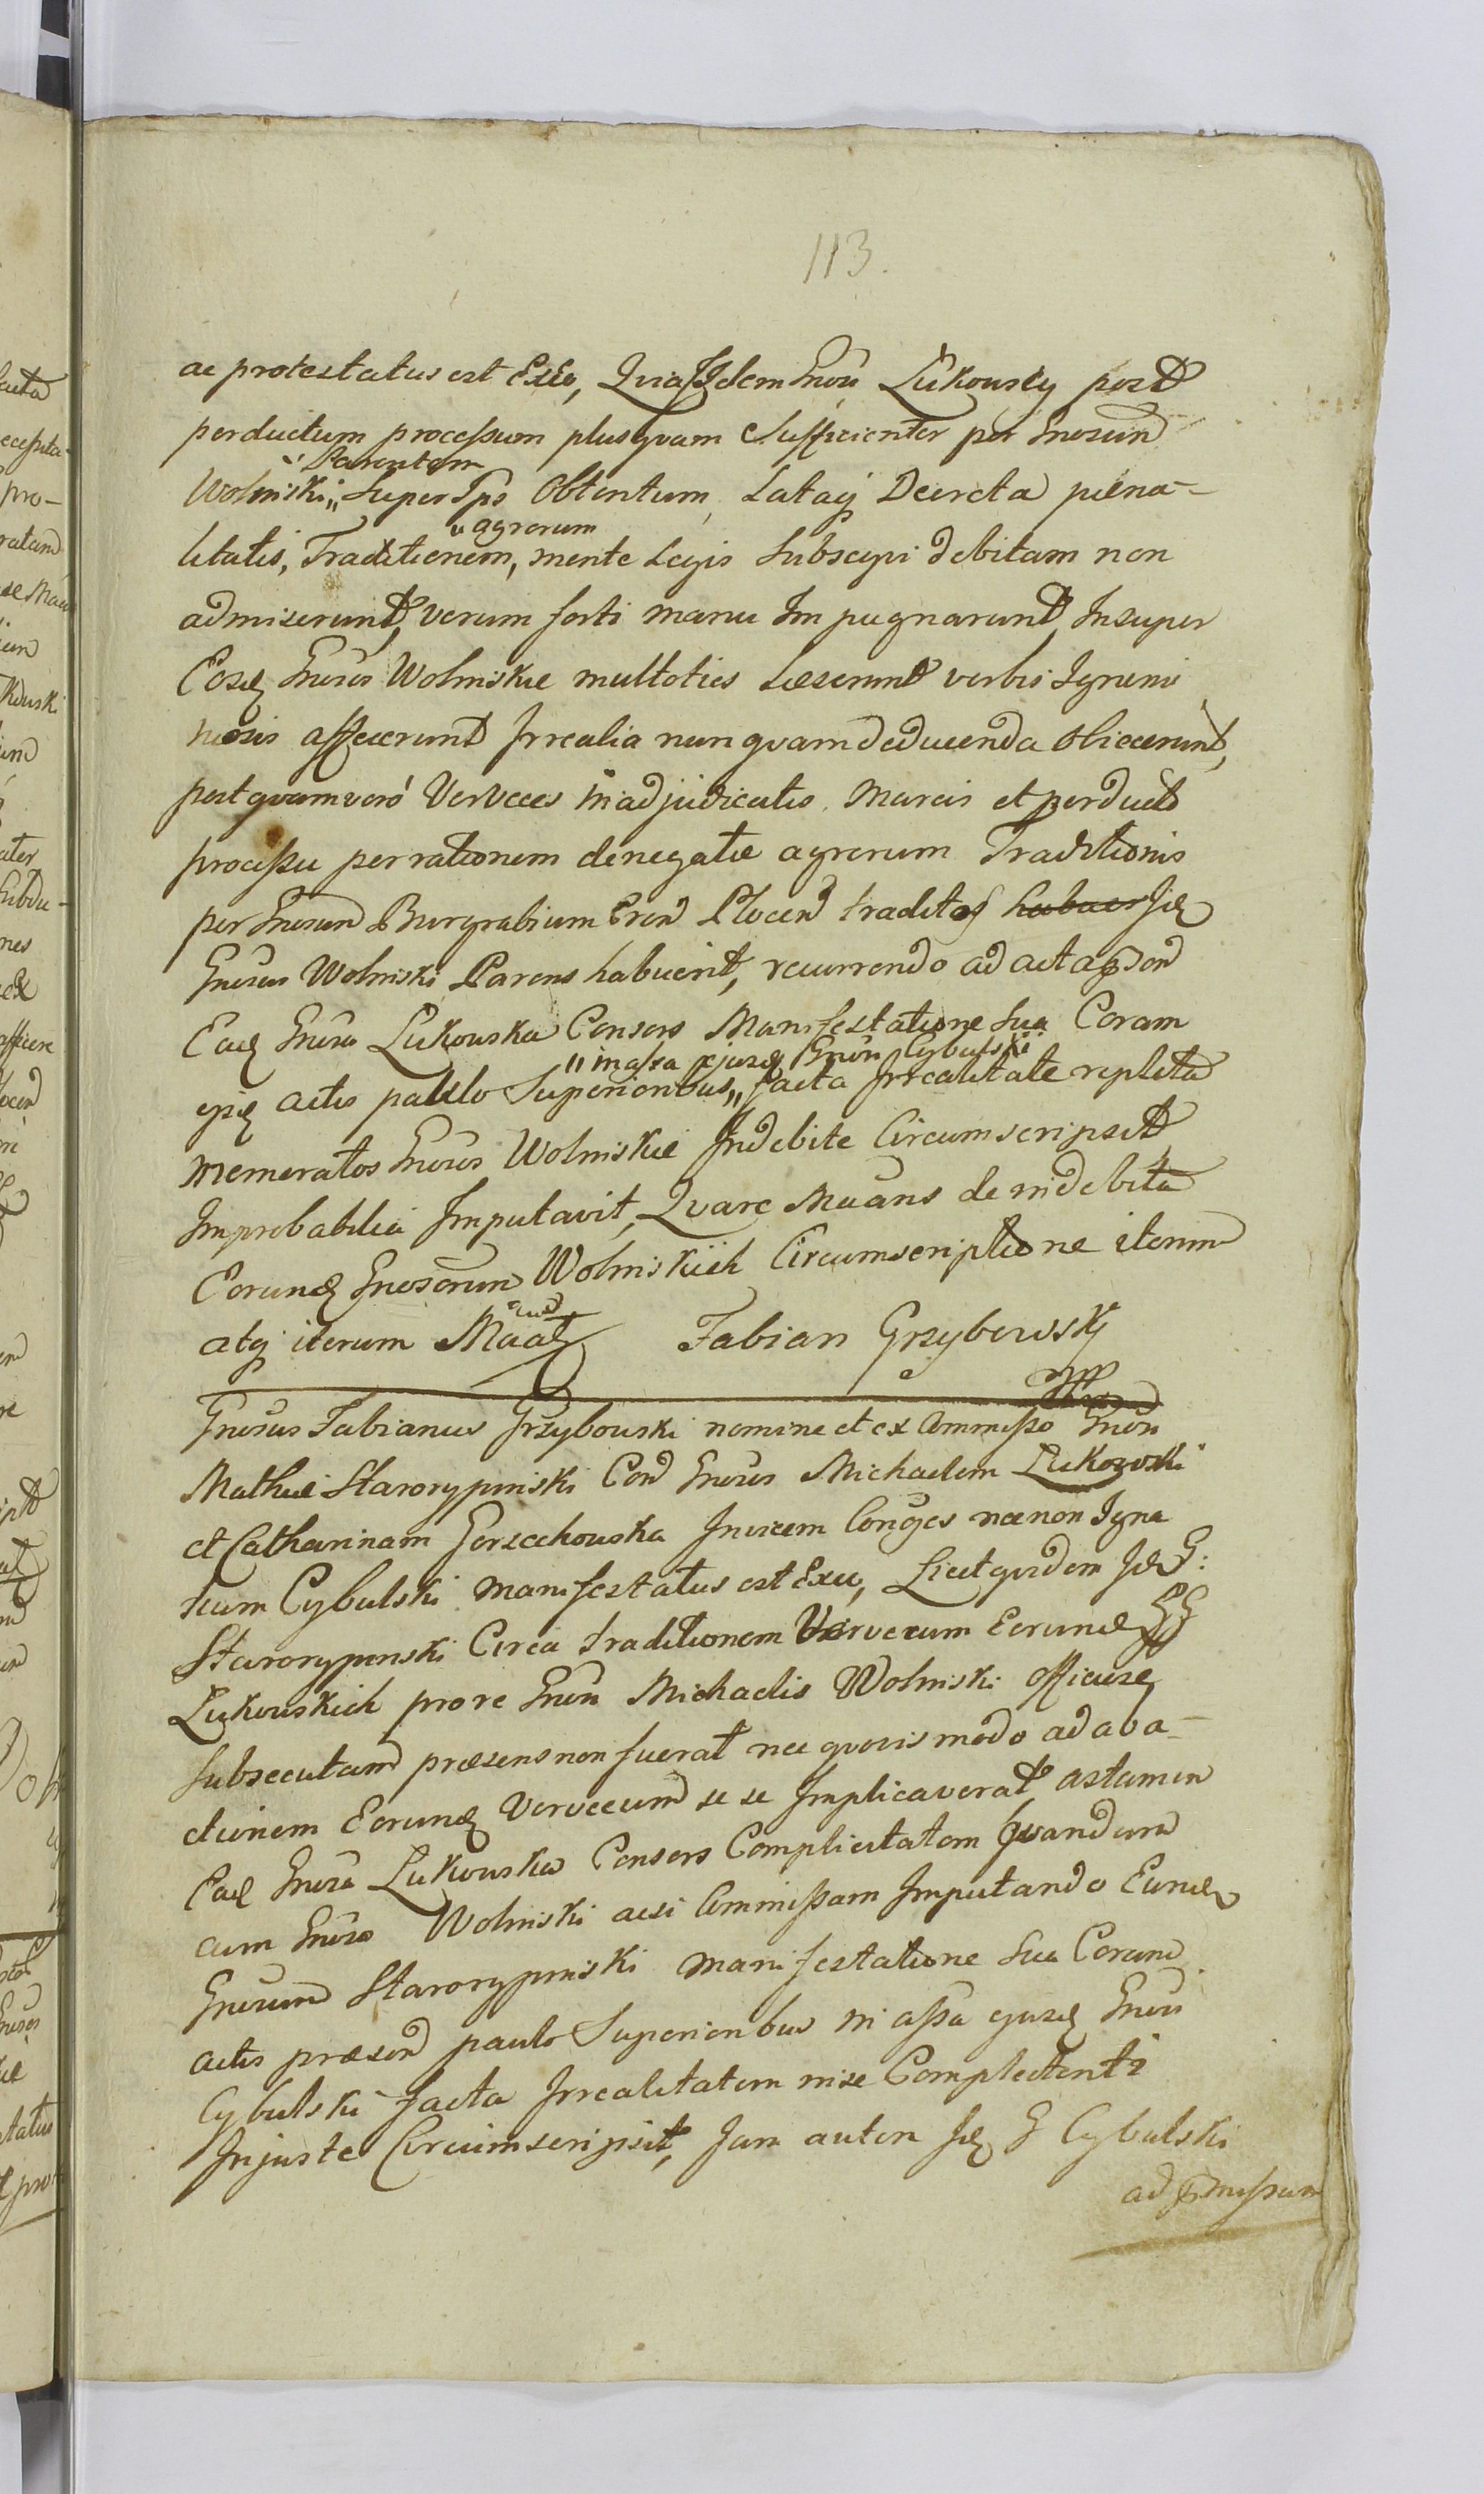 113.
ac protestatus est Exeo, Quia Iidem Gnosi Łukowscy post
perductum processum plusquam Sufficienter per Gnosum
Wolmiski „Parentem Super Ipso Obtentum, Lataq Decreta poena-
litatis, Traditionem, „agrorum mente Legis Subsequi debitam non
admiserunt, verum forti manu Impugnarunt, Insuper
Eosd Gnosos Wolmiskie multoties Læserunt verbis Ignomi
niosis affecerunt Irrealia nunquam deducenda Obiecerunt,
postquam vero Verveces in adjudicatis Marcis et perducto
processu per rationem denegatæ agrorum Traditionis
per Gnosum Burgrabium Cren Plocen traditos habuer Jd
Gnosus Wolmiski Parens habuerit, recurrendo ad acta
Ead Gnosa Łukowska Consors Manifestatione Sua Coram
actis paulo Superioribus „in assa ejusd Gnosi Cybulski facta Irrealitate repleta
memoratos Gnosos Wolmiskie Indebite Circumscripsit
Improbabilia Imputavit, Quare Maans de indebita
Eorund Gnosorum Wolmiskich Circumscriptione iterum
atq iterum Maat Fabian Grzybowsky
Gnosus Fabianus Grzybowski nomine et ex Commisso Gnosi
Mathæi Starorypinski Con Gnosos Michaelem Łukowski
et Catharinam Gorzechowska Invicem Conjges necnon Igna
tium Cybulski manifestatus est Exeo, Licet quidem Jd G:
Starorypinski Circa traditionem Vervecum Eorund GG
Łukowskich pro re Gnosi Michaelis Wolmiski officiose
Subsecutam præsens non fuerat nec quovis modo ad aba-
ctionem Eorund Vervecum se se Implicaverat, astamen
Ead Gnosa Łukowska Consors Complicitatem quandam
cum Gnoso Wolmiski acsi Commissam Imputando Eund
Gnosum Starorypinski manifestatione Sua Coram
actis præsen paulo Superioribus in assa ejusd Gnosi
Cybulski facta Irrealitatem in se Complectenti
Injuste Circumscripsit, Jam autem Jd G Cybulski
ad